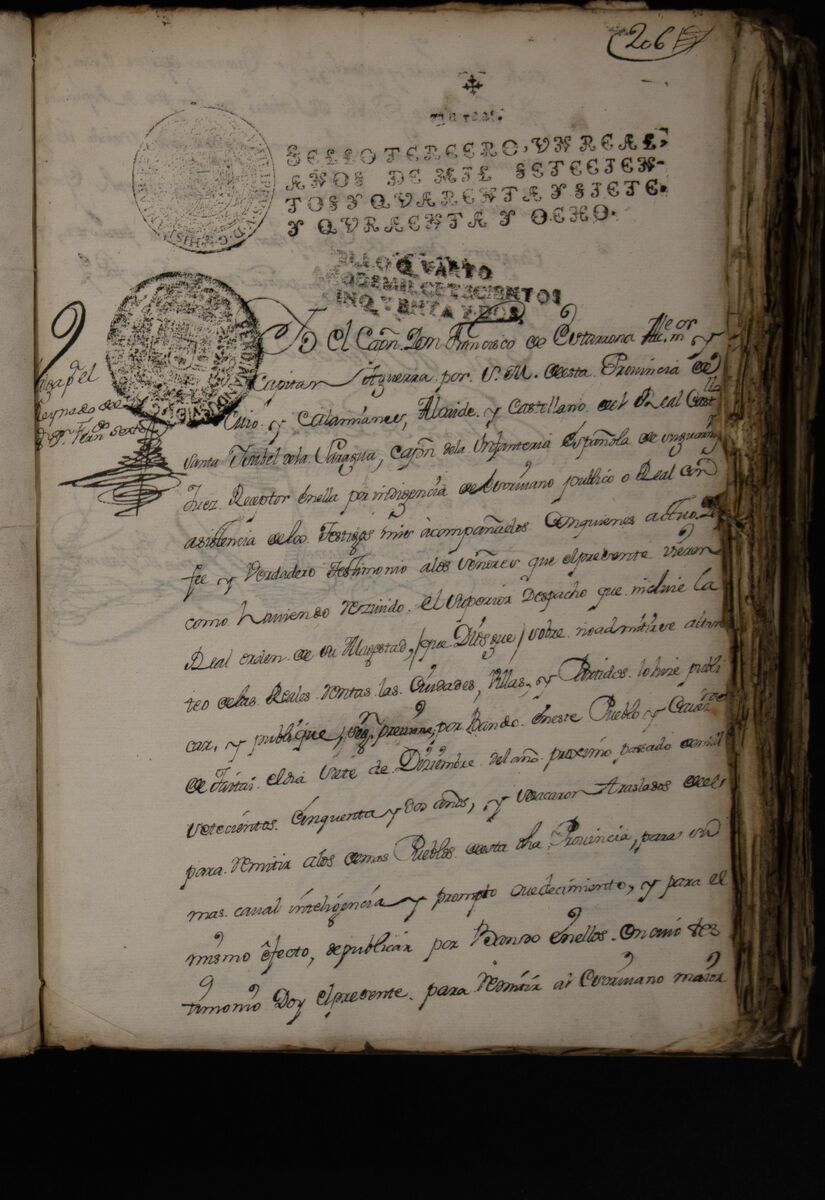 206
Un real.
SELLO TERCERO, VN REAL,
AÑOS DE MIL SETECIEN-
TOS Y QVARENTA Y SIETE,
Y QVRAENTA Y OCHO.
ELLO QVARTO
AÑODEMIL CETECIENTOS
CINQVENTA Y DOS,
PHILIPPUS V D G HISPANIAR
FERDINANDUS VI D
El Capn. Don Francisco de Theor
Capitan Aguerra por S. M. de esta Provincia de
Cuio, y Calamianes, Alcaide, y Castellano del Real Castllo
Santa Isabel de la Paragua, Capn de la Infanteria Española de
Juez Receptor en ella por indigencia de escrivano publico o Real con
asistencia de los Testigos mis acompañados Conquienes actuo,
fee y Verdadero testimonio alos señores que el presente vieren
como haviendo reçivido el superior Despacho que incluie la
Real orden de su Magestad, (que Dios gue) sobre no admitirse
teo de las Reales rentas las Ciudades, Villas, y Partidos lo hise publi
car, y publique por Bando en este Pueblo y
de Taitai el dia siete de Disiembre del año proximo pasado de mill
setecientos Cinquenta y dos años, y se sacaron traslados de el
para remitir alos demas Pueblos de esta dha Provincia, para su
mas caval inteligencia y prompto ovedecimiento, y para el
mismo efecto, de publicar por Bando en ellos. On cuio tes
timonio Doy el presente para Remitir al escrivano maior